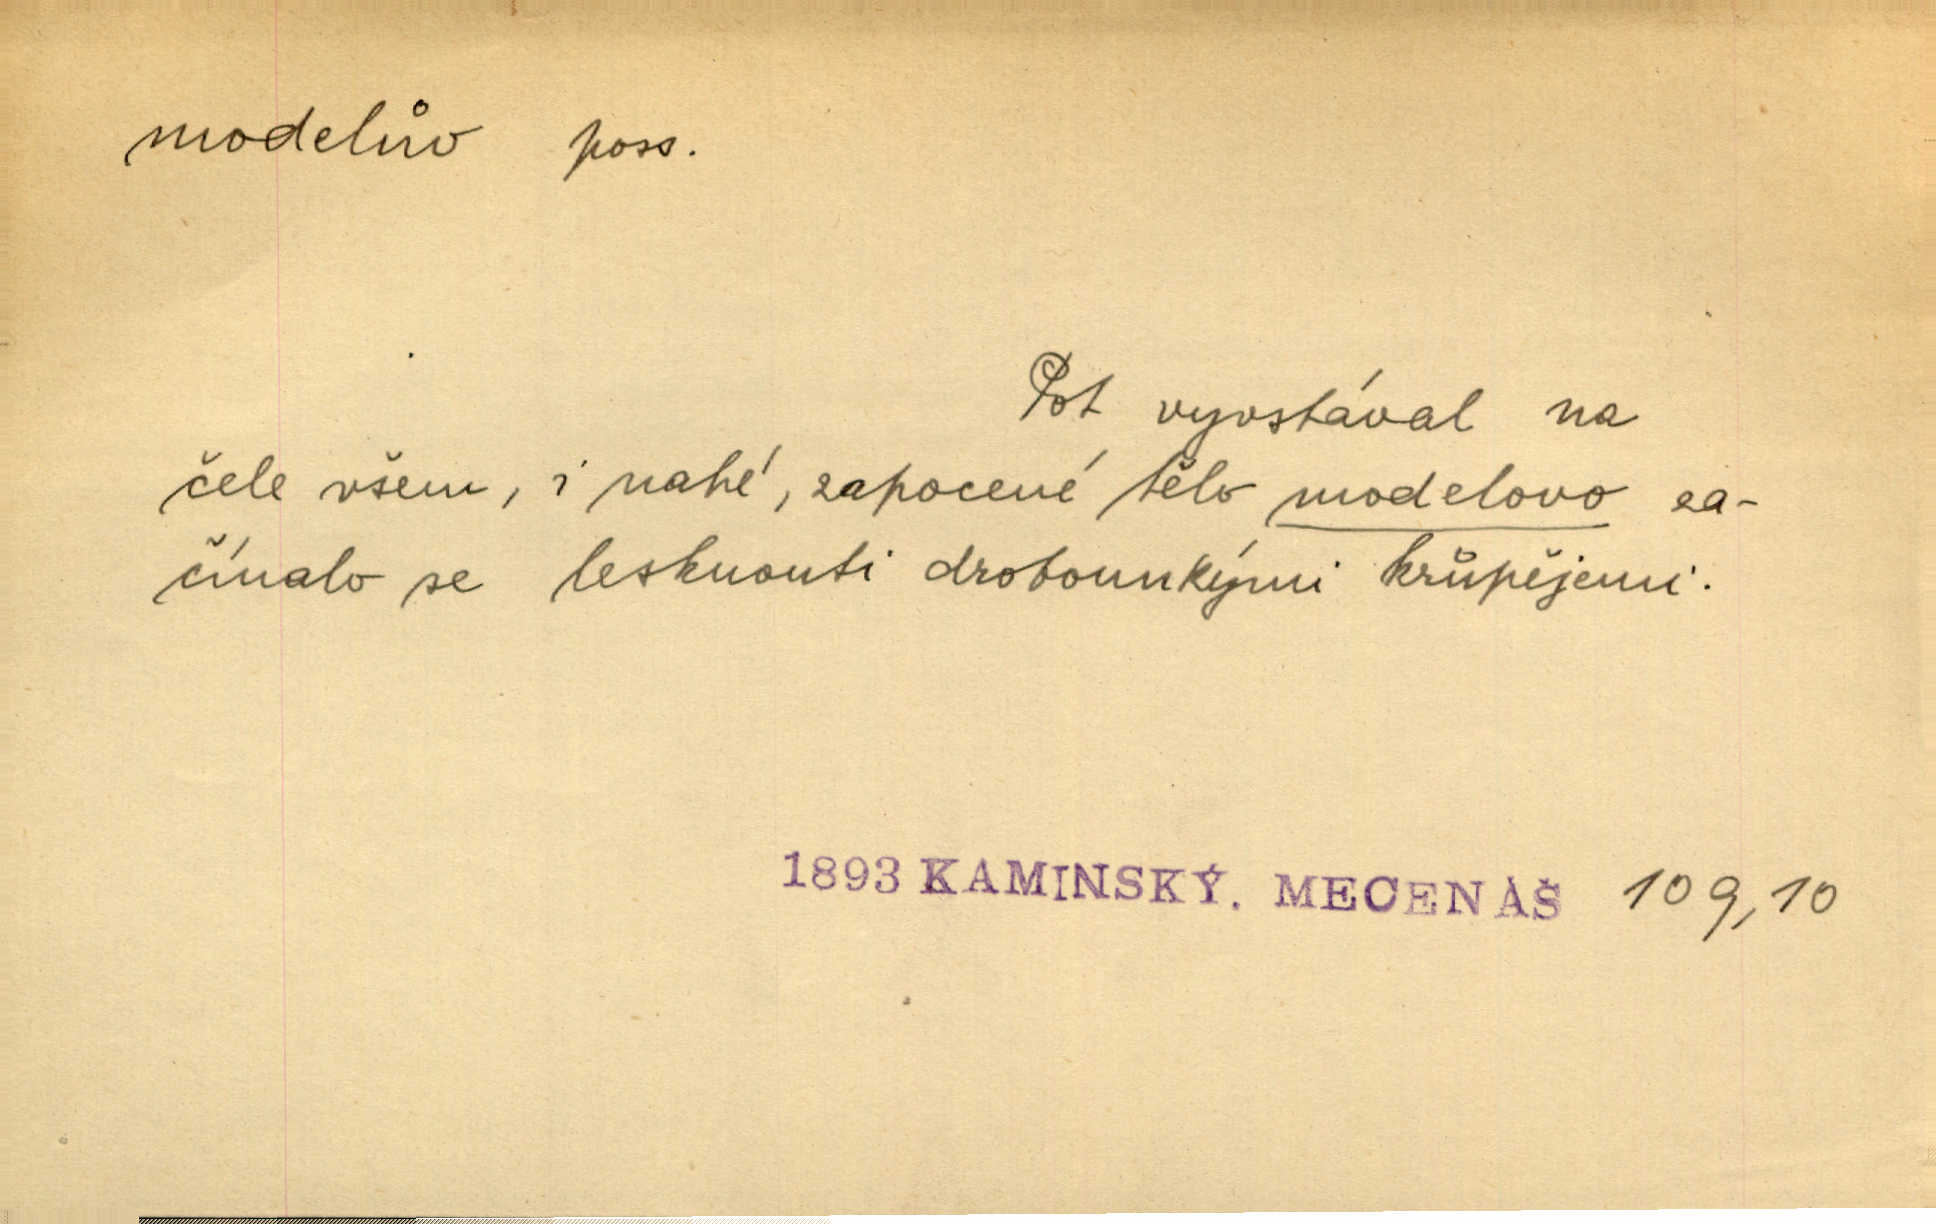 modelův poss.
Pot vyvstával na
čele všem, i nahé, zapocené tělo modelovo za-
čínalo se lesknouti drobounkými krůpějemi.
1893 KAMINSKÝ. MECENÁŠ 109,10